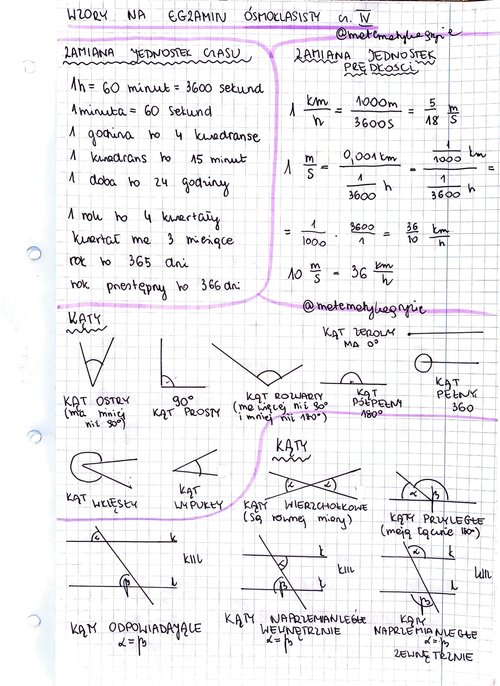 WZORY NA EGZAMIN ÓSMOKLASISTY cz. IV
@matematykagryzie
ZAMIANA JEDNOSTEK CZASU
1h = 60 minut = 3600 sekund
1 minuta = 60 sekund
1 godzina to 4 kwadranse
1 kwadrans to 15 minut
1 doba to 24 godziny
1 rok to 4 kwartały
kwartał ma 3 miesiące
rok to 365 dni
rok przestępny to 366 dni
ZAMIANA JEDNOSTEK
PRĘDKOŚCI
1 km/h = 1000m/3600s = 5/18 m/s
1 m/s = 0,001km / (1/3600 h) = (1/1000 km) / (1/3600 h) =
= 1/1000 · 3600/1 = 36/10 km/h
10 m/s = 36 km/h
@matematykagryzie
KĄTY
KĄT OSTRY
(ma mniej
niż 90°)
90°
KĄT PROSTY
KĄT ROZWARTY
(ma więcej niż 90°
i mniej niż 180°)
KĄT ZEROWY
MA 0°
KĄT
PÓŁPEŁNY
180°
KĄT
PEŁNY
360
KĄT WKLĘSŁY
KĄT
WYPUKŁY
KĄTY
α α
KĄTY WIERZCHOŁKOWE
(są równej miary)
α β
KĄTY PRZYLEGŁE
(mają łącznie 180°)
α k
k||l
β l
KĄTY ODPOWIADAJĄCE
α = β
k
α k||l
β l
KĄTY NAPRZEMIANLEGŁE
WEWNĘTRZNIE
α = β
α k
k||l
l
β
KĄTY
NAPRZEMIANLEGŁE
α = β
ZEWNĘTRZNIE